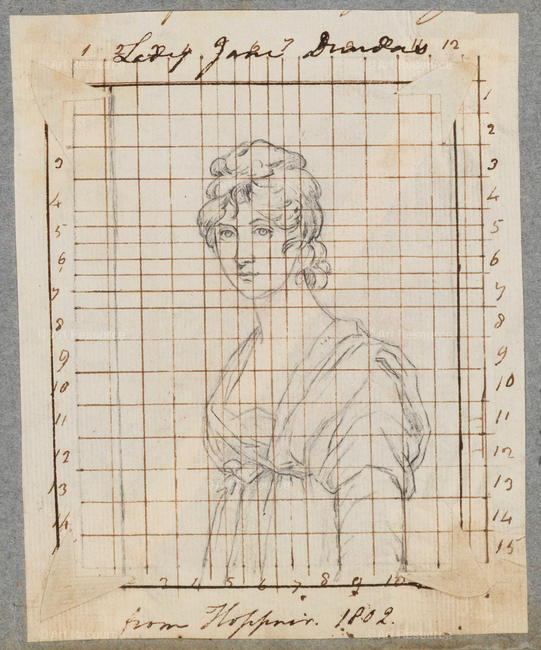 1 Lady Jane Dundas 12
1
2
3 3
4 4
5 5
6 6
7 7
8 8
9 9
10 10
11 11
12 12
13 13
14 14
15
2 3 4 5 6 7 8 9 10
from Hoppner. 1802.